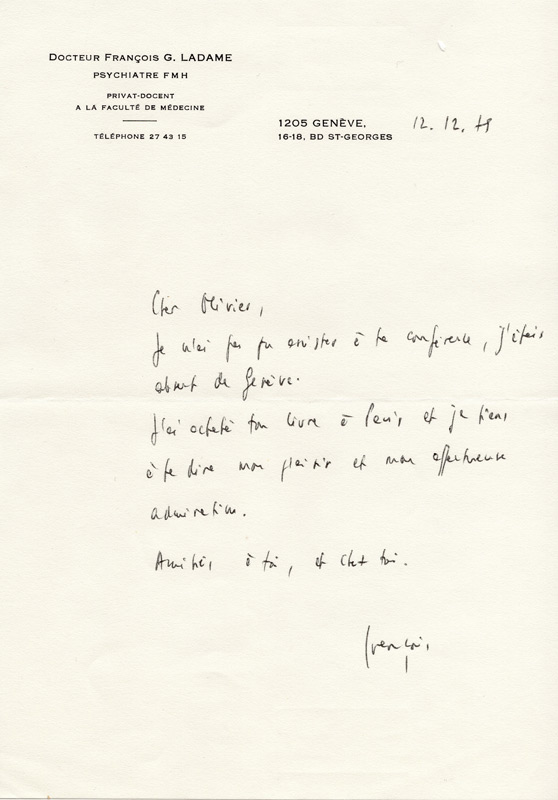 DOCTEUR FRANÇOIS G. LADAME
PSYCHIATRE FMH
PRIVAT-DOCENT
A LA FACULTÉ DE MÉDECINE
TÉLÉPHONE 27 43 15
1205 GENÈVE,
16-18, BD ST-GEORGES
12. 12. 78
Cher Olivier,
Je n'ai pas pu assister à ta conférence, j'étais
absent de Genève.
J'ai acheté ton livre à Paris et je tiens
à te dire mon plaisir et mon affectueuse
admiration.
Amitiés à toi, et chez toi.
François